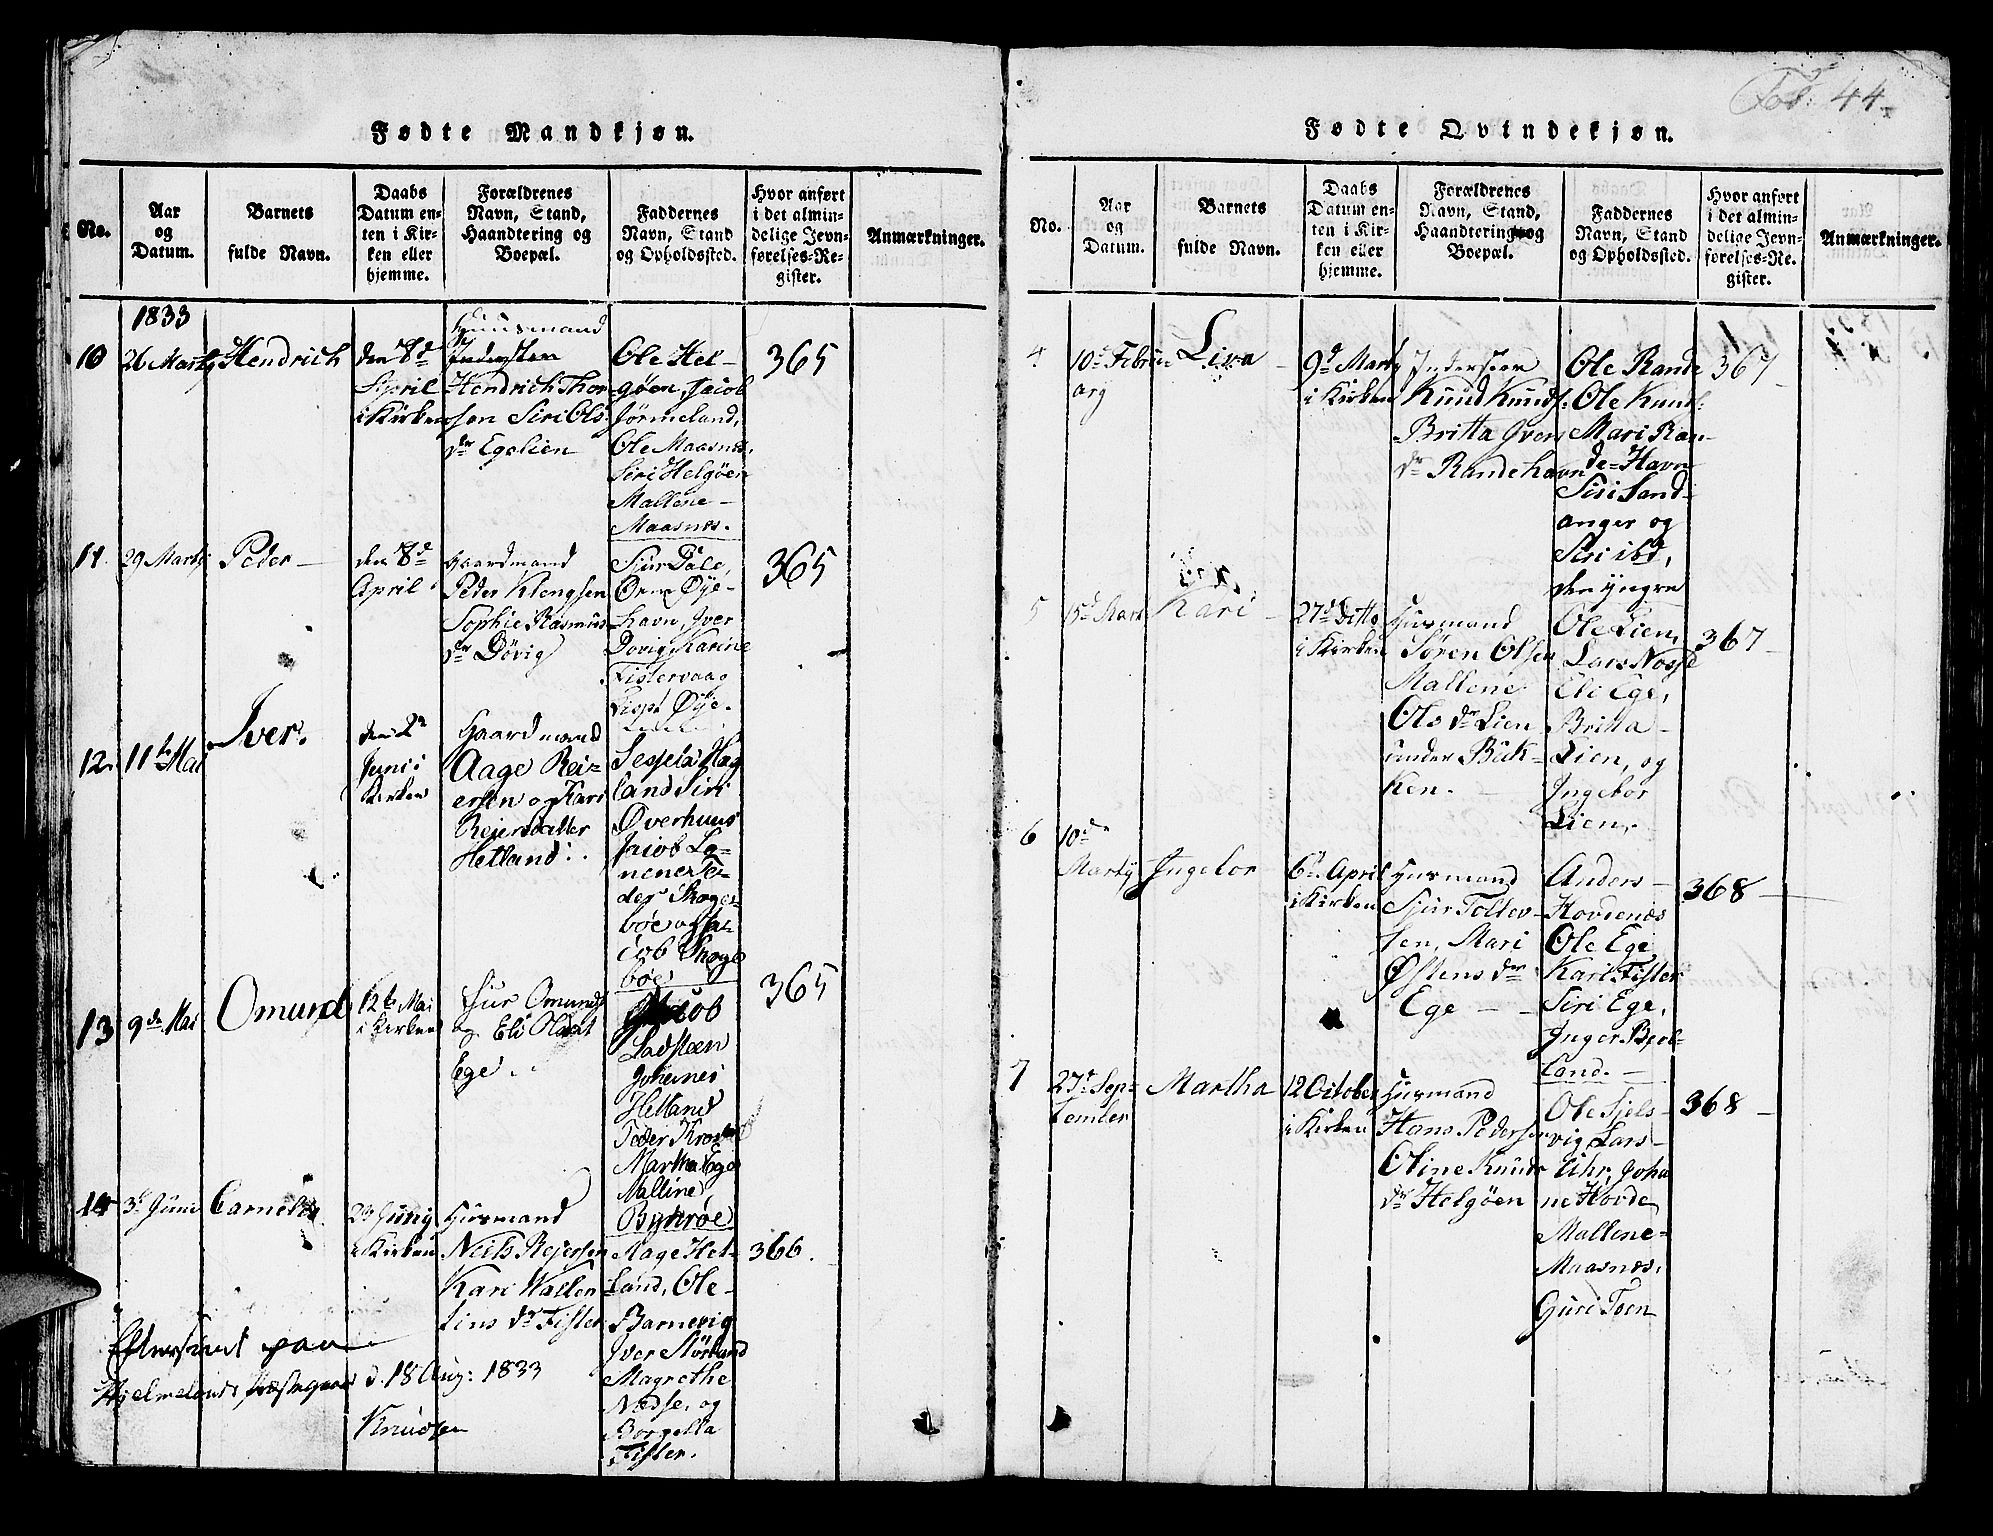 Fol: 44.
Fødte Mandkjøn.
No.
Aar og Datum.
Barnets fulde Navn.
Daabs Datum enten i Kirken eller hjemme.
Forældrenes Navn, Stand, Haandtering og Boepæl.
Faddernes Navn, Stand og Opholdssted.
Hvor anført i det almindelige Jevnførelses-Register.
Anmærkninger.
1833
10
26 Marty
Hendrich
den 8d
April
i Kirken
Huusmand
Hendrich Thor-
sen Siri Ols-
dr Egelien
Ole Hel-
gøen, Jacob
Jørmeland,
Ole Maasnes,
Siri Helgøen
Mallene
Maasnes.
365
11
29 Marty
Peder
den 8d
April
Gaardmand
Peder Klengsen
Sophie Rasmus
dr Døvig
Siur Dale,
Orm Øye-
havn, Iver
Dovig, Karine
Fistervaag
365
12
11te Mai
Iver.
Juni i
Kirken
Gaardmand
Aage Rei-
ersen og Kari
Reiersdatter
Hetland
land Siri
Øverhuus
Jacob La-
der Skoger-
bøe og Ja-
cob Skoge
bøe
13
9de Mai
Omund
12te Mai
i Kirken
Siur Omunds
og Eli Olsdat
Ege
Jacob
Ladsteen
Johannes
Hetland
Peder
Martha Ege
Malline
Byhrøe
365
14
3d Juni
23 Juny
i Kirken
Husmand
Niels Rejersen
Kari Vallen
tins dr Fister
Aage Het-
land, Ole
Barnevig
Iver
Magrethe
Nædse, og
Borgella
Fister.
366
Efterseet paa
Hjelmelands Præstegaard d. 18 Aug: 1833
Knudsen
Fødte Qvindekjøn.
No.
Aar og Datum.
Barnets fulde Navn.
Daabs Datum enten i Kirken eller hjemme.
Forældrenes Navn, Stand, Haandtering og Boepæl.
Faddernes Navn, Stand og Opholdssted.
Hvor anført i det almindelige Jevnførelses-Register.
Anmærkninger.
4
10d Febru
arg
Liva
9d Marty
i Kirken
Inderseer
Knud Knuds:
Britta Ivers
dr Randehavn
Ole Rande
Ole Knud-
Mari Ran-
de-Havn
Siri Sand-
anger og
Siri ibd,
den yngre
367
5
15d Mart
Kari
27d Ditto
i Kirken
Husmand
Søren Olsen
Mallene
Ols dr Lien
under Bük-
ken.
Ole Lien,
Lars
Eli Ege,
Britta
Lien, og
Ingebor
Lien,
367
6
10d
Marty
Ingebor
6d April
i Kirken
Husmand
Sjur Tollev-
sen, Mari
Østens dr
Ege
Anders
Hovdenæs
Ole Ege
Kari Fister
Siri Ege,
Inger Bjel-
land.
368
7
27d Sep-
tember
Martha
12 October
i Kirken
Husmand
Hans Pedersen
Oline Knuds
dr Helgøen
Ole Sjels-
vig Lars
Uhr, Joha
ne Hovde
Mallene
Maasnæs,
Guri Toen
368